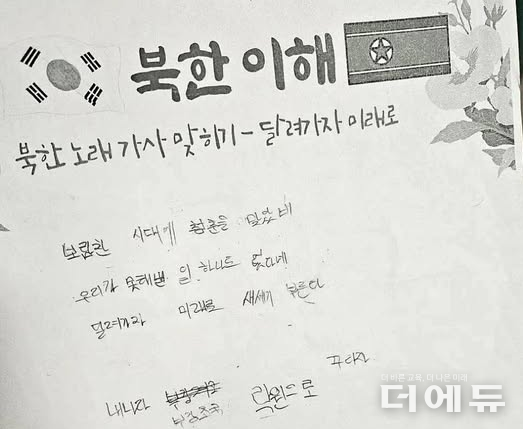 북한 이해
북한 노래 가사 맞히기 - 달려가자 미래로
보람찬 시대에 청춘을 맡았네
우리가 못해낼 일 하나도 없다네
달려가자 미래로 새세기 부른다
내나라 부강조국 락원으로 꾸리자
더 바른 교육, 더 나은 미래
더에듀